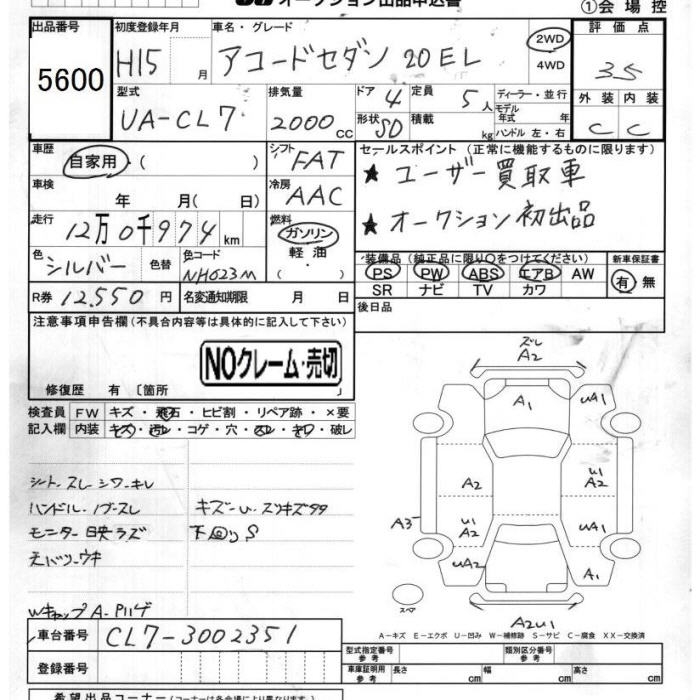 オークション出品申込書
①会場控
出品番号
5600
初度登録年月
H15 月
車名・グレード
アコードセダン 20EL
2WD
4WD
評価点
3.5
外装 内装
C C
型式
UA-CL7
排気量
2000 cc
ドア 4
形状 SD
定員 5人
積載 kg
ディーラー・並行
モデル年式 年
ハンドル 左・右
車歴
自家用・( )
シフト FAT
冷房 AAC
車検 年 月( 日)
走行 12万0千974 km
燃料
ガソリン
軽油
( )
色 シルバー 色替
色コード NH623M
R券 12,550円
名変通知期限 月 日
セールスポイント (正常に機能するものに限ります)
★ ユーザー買取車
★ オークション初出品
装備品 (純正品に限り○をつけてください)
PS PW ABS エアB AW
SR ナビ TV カワ
新車保証書
有・無
後日品
注意事項申告欄(不具合内容等は具体的に記入して下さい)
NOクレーム・売切
修復歴 有 〔箇所 〕
検査員記入欄
FW キズ・飛石・ヒビ割・リペア跡・×要
内装 キズ・汚レ・コゲ・穴・スレ・キワ・破レ
シート・スレ シワ・キレ
ハンドル・ノブスレ
モニター映ラズ
キズ〜U・スリキズ多々
下回りS
Wキャップ A・P ハゲ
ズレ
A2
A1
UA1
A2
U1
A2
A3
U1
A2
UA1
UA2
A1
A2U1
スペア
A－キズ E－エクボ U－凹み W－補修跡 S－サビ C－腐食 XX－交換済
車台番号 CL7-3002351
登録番号
型式指定番号 参考
類別区分番号 参考
車庫証明用 参考 長さ 幅 高さ
希望出品コーナー(コーナーは各会場により異なります。)